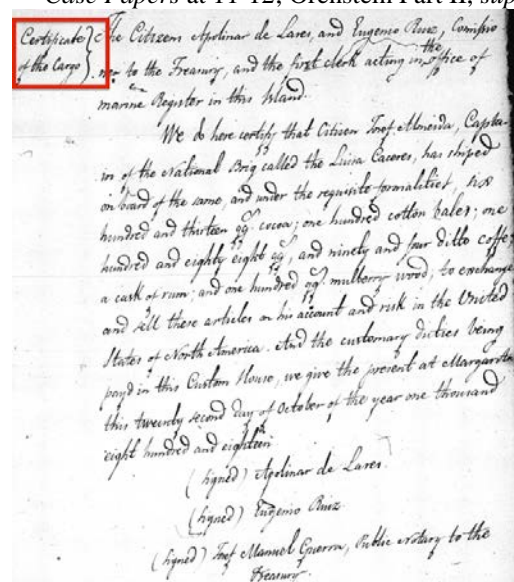 Case Papers at 11-12; Orenstein Part II, sup
Certificate of the Cargo
The Citizens Apolinar de Lares, and Eugenio Ruiz, Comissio
ner to the Treasury, and the first clerk acting in the office of
marine Register in this Island.
We do here certify that Citizen Josef Almeida, Captain
of the National Brig called the Luisa Caceres, has shiped
on board of the same, and under the requisite formalities, six
hundred and thirteen qqs cocoa; one hundred cotton bales; one
hundred and eighty eight qqs, and ninety and four ditto coffe;
a cask of rum; and one hundred qqs mulberry wood; to exchange
and sell these articles on his account and risk in the United
States of North America. And the customary duties being
payd in this Custom House, we give the present at Margarita
this twenty second day of October of the year one thousand
eight hundred and eighteen.
(signed) Apolinar de Lares.
(signed) Eugenio Ruiz
(signed) Josf Manuel Guerra, Public Notary to the
Treasury.